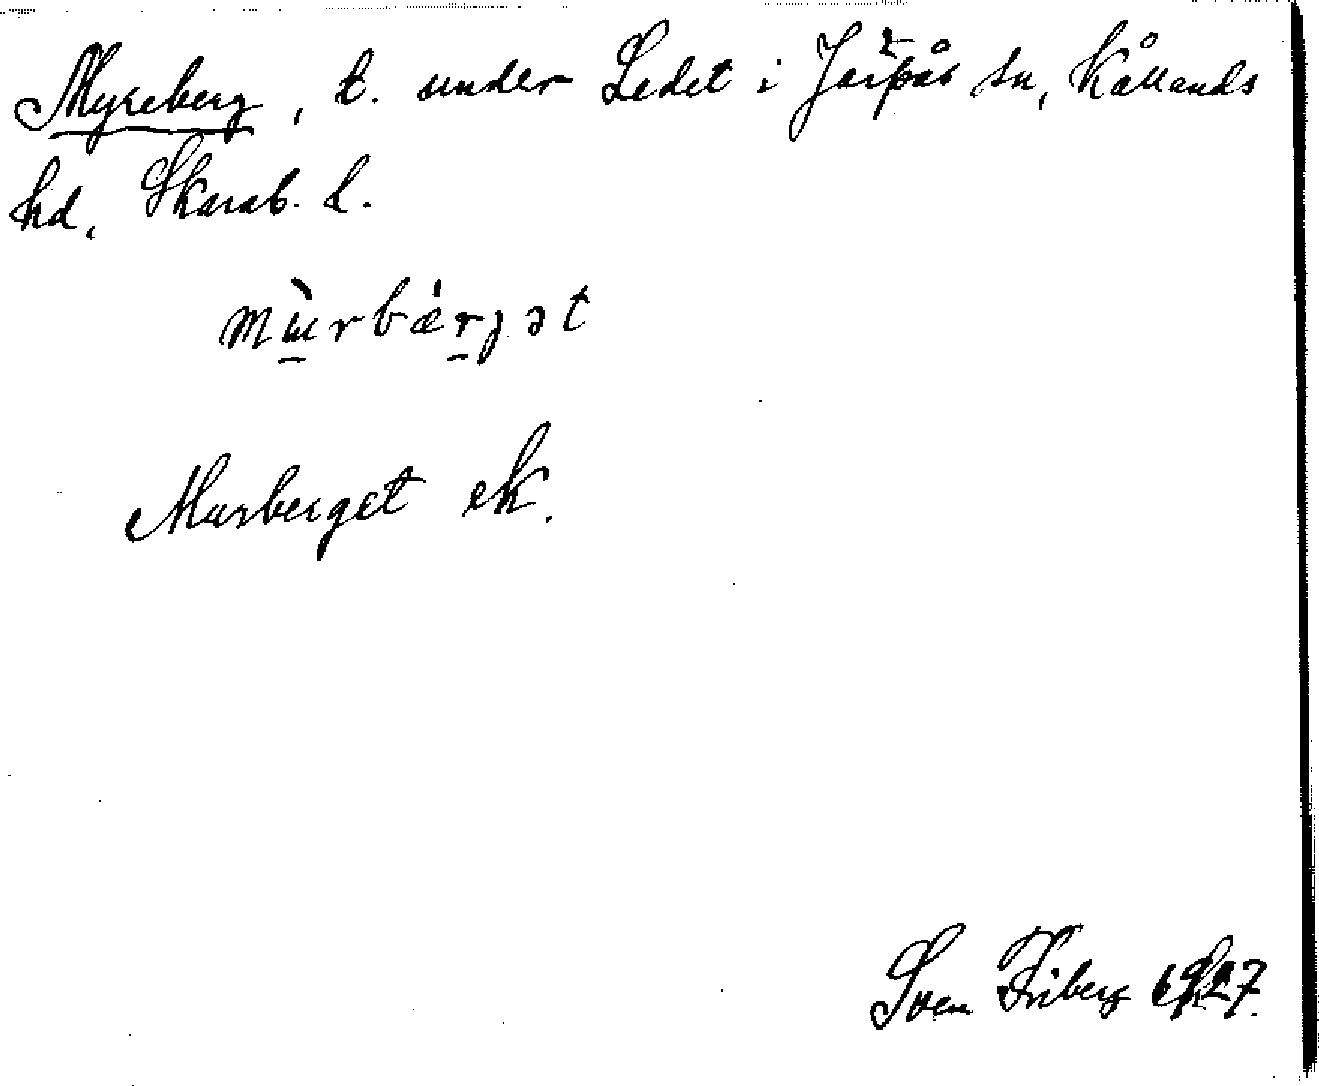 Myreberg, t. under Ledet i Järpås sn, Kållands
hd, Skarab. l.
mùrbærjət
Murberget ek.
Sven Friberg 1927.